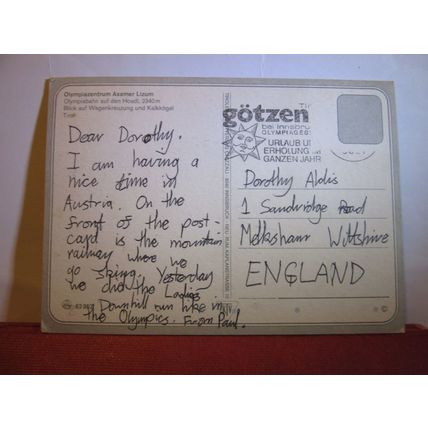 Olympiazentrum Axamer Lizum
Olympiabahn auf den Hoadl, 2340m
Blick auf Wagenkreuzung und Kalkkögel
Tirol
Dear Dorothy.
I am having a
nice time in
Austria. On the
front of the post-
card is the mountain
railway where we
go skiing. Yesterday
we did the Ladies
Downhill run like in
the Olympics. From Paul.
götzen
bei Innsbru
OLYMPIAGEB
URLAUB U
ERHOLUNG IM
GANZEN JAHR
Dorothy Aldis
1 Sandridge Road
Melksham Wiltshire
ENGLAND